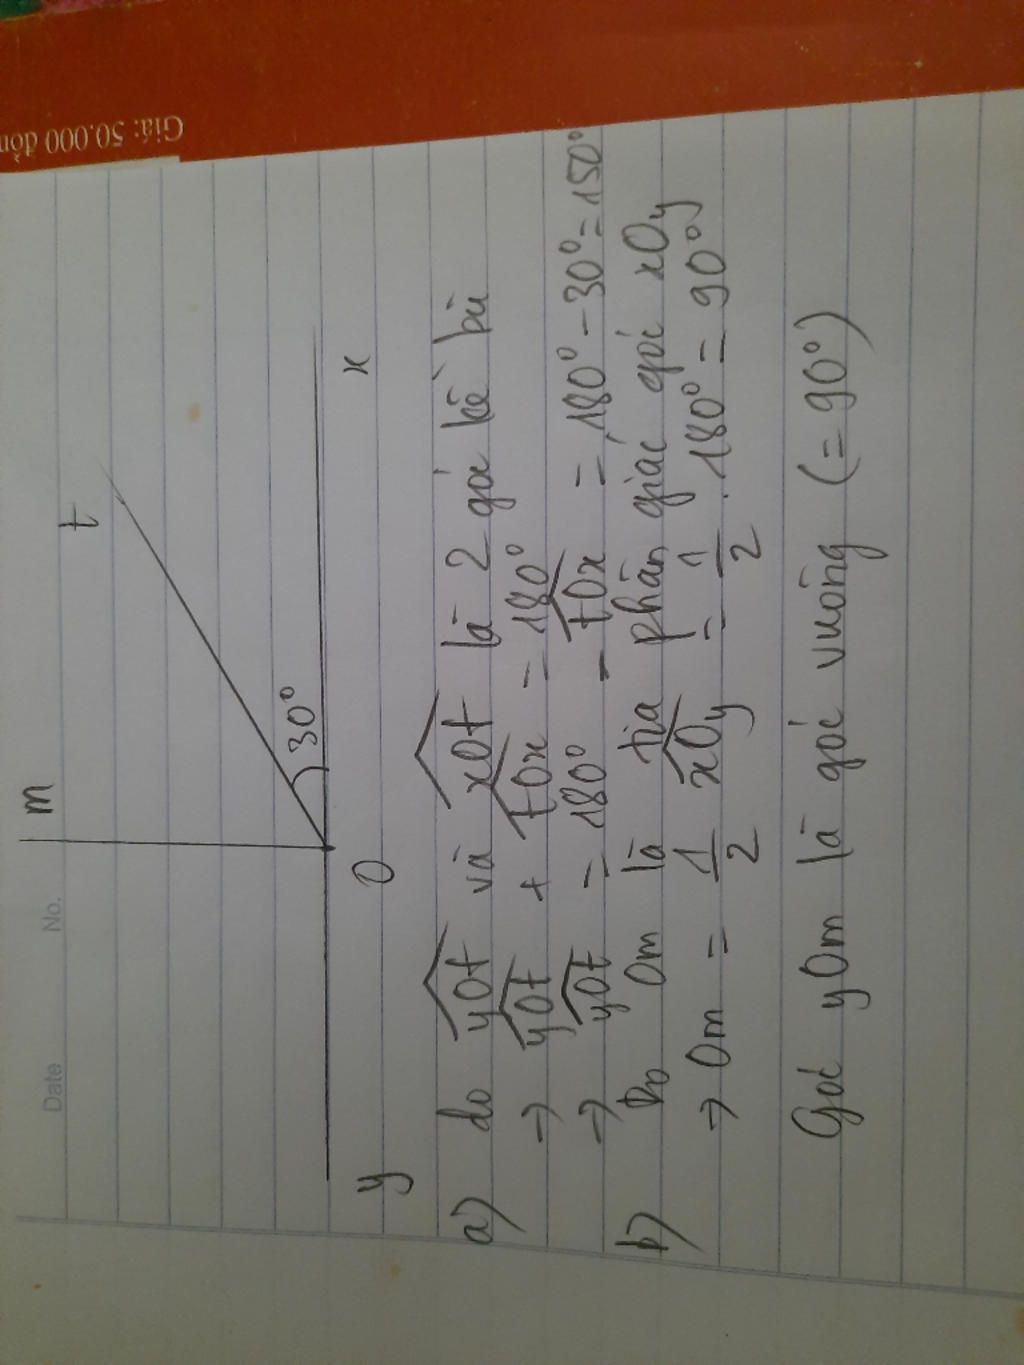 Giá: 50.000 đồn
Date
No.
m
t
30°
y
O
x
a) do yOt và xOt là 2 góc kề bù
→ yOt + tOx = 180°
→ yOt = 180° - tOx = 180° - 30° = 150°
b) Do Om là tia phân giác góc xOy
→ Om = 1/2 xOy = 1/2 . 180° = 90°
Góc yOm là góc vuông (= 90°)